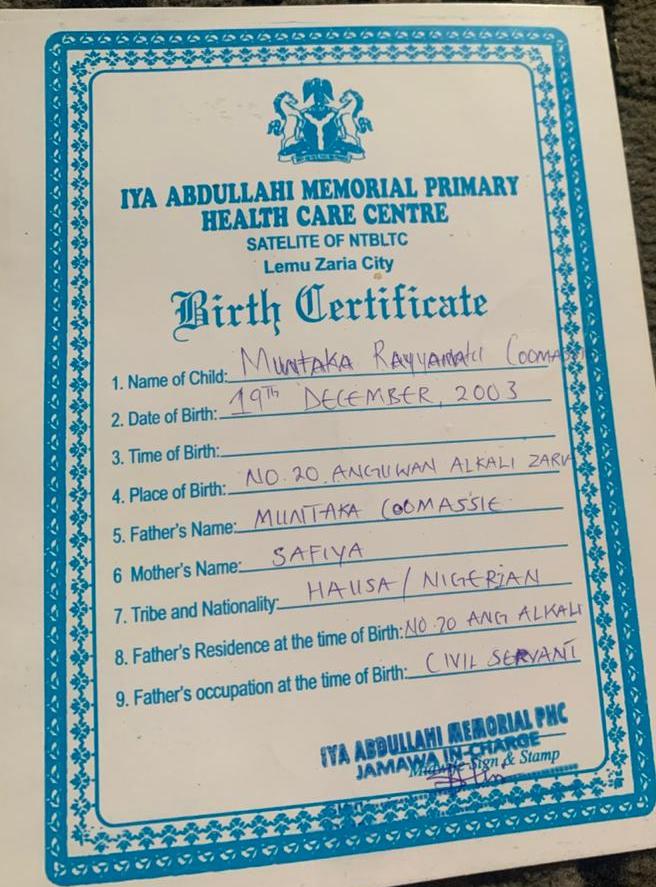 IYA ABDULLAHI MEMORIAL PRIMARY
HEALTH CARE CENTRE
SATELITE OF NTBLTC
Lemu Zaria City
Birth Certificate
1. Name of Child: MUNTAKA RAYYANATU COOMASSI
2. Date of Birth: 19TH DECEMBER, 2003
3. Time of Birth:
4. Place of Birth: NO. 20 ANGUWAN ALKALI ZARI
5. Father's Name: MUNTAKA COOMASSIE
6 Mother's Name: SAFIYA
7. Tribe and Nationality: HAUSA/NIGERIAN
8. Father's Residence at the time of Birth: NO 20 ANG ALKALI
9. Father's occupation at the time of Birth: CIVIL SERVANT
IYA ABDULLAHI MEMORIAL PHC
JAMAWA IN-CHARGE
Sign & Stamp